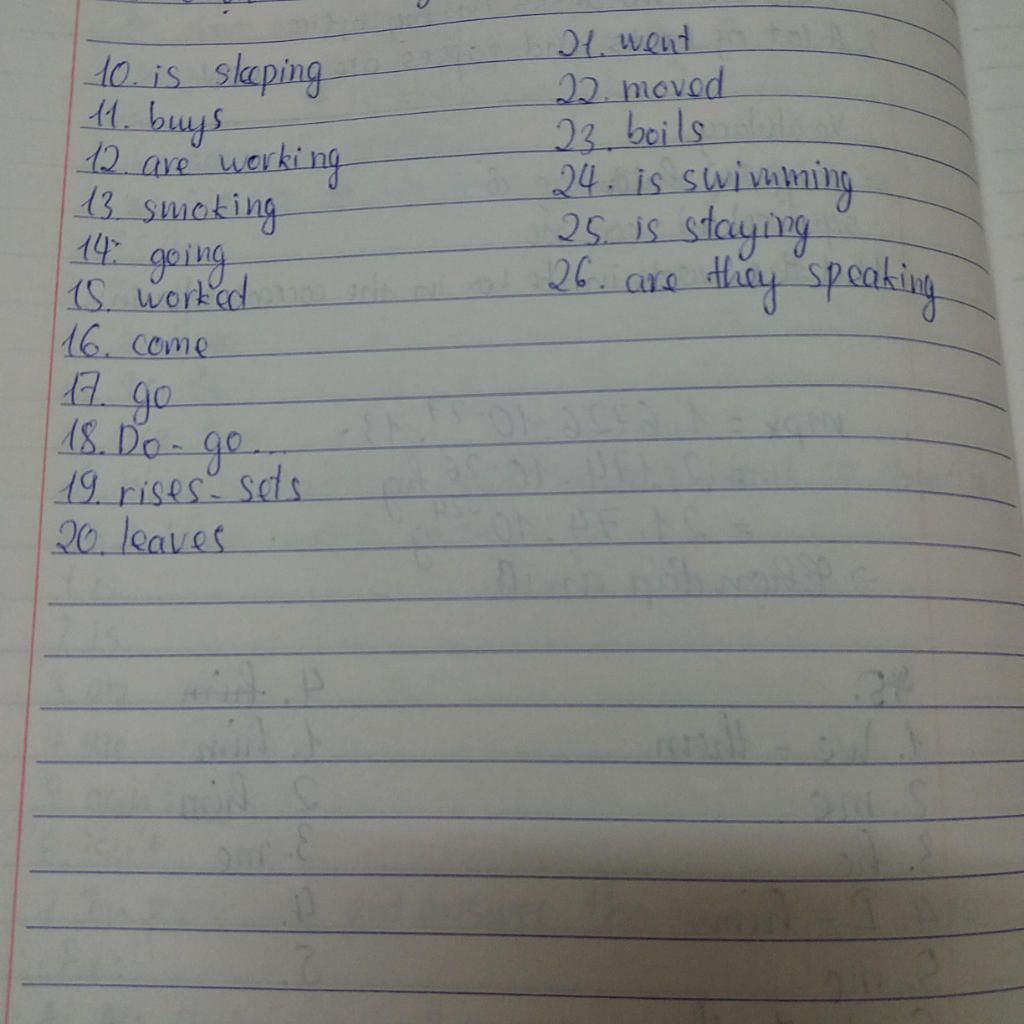 10. is sleeping
11. buys
12. are working
13. smoking
14. going
15. worked
16. come
17. go
18. Do - go...
19. rises - sets
20. leaves
21. went
22. moved
23. boils
24. is swimming
25. is staying
26. are they speaking